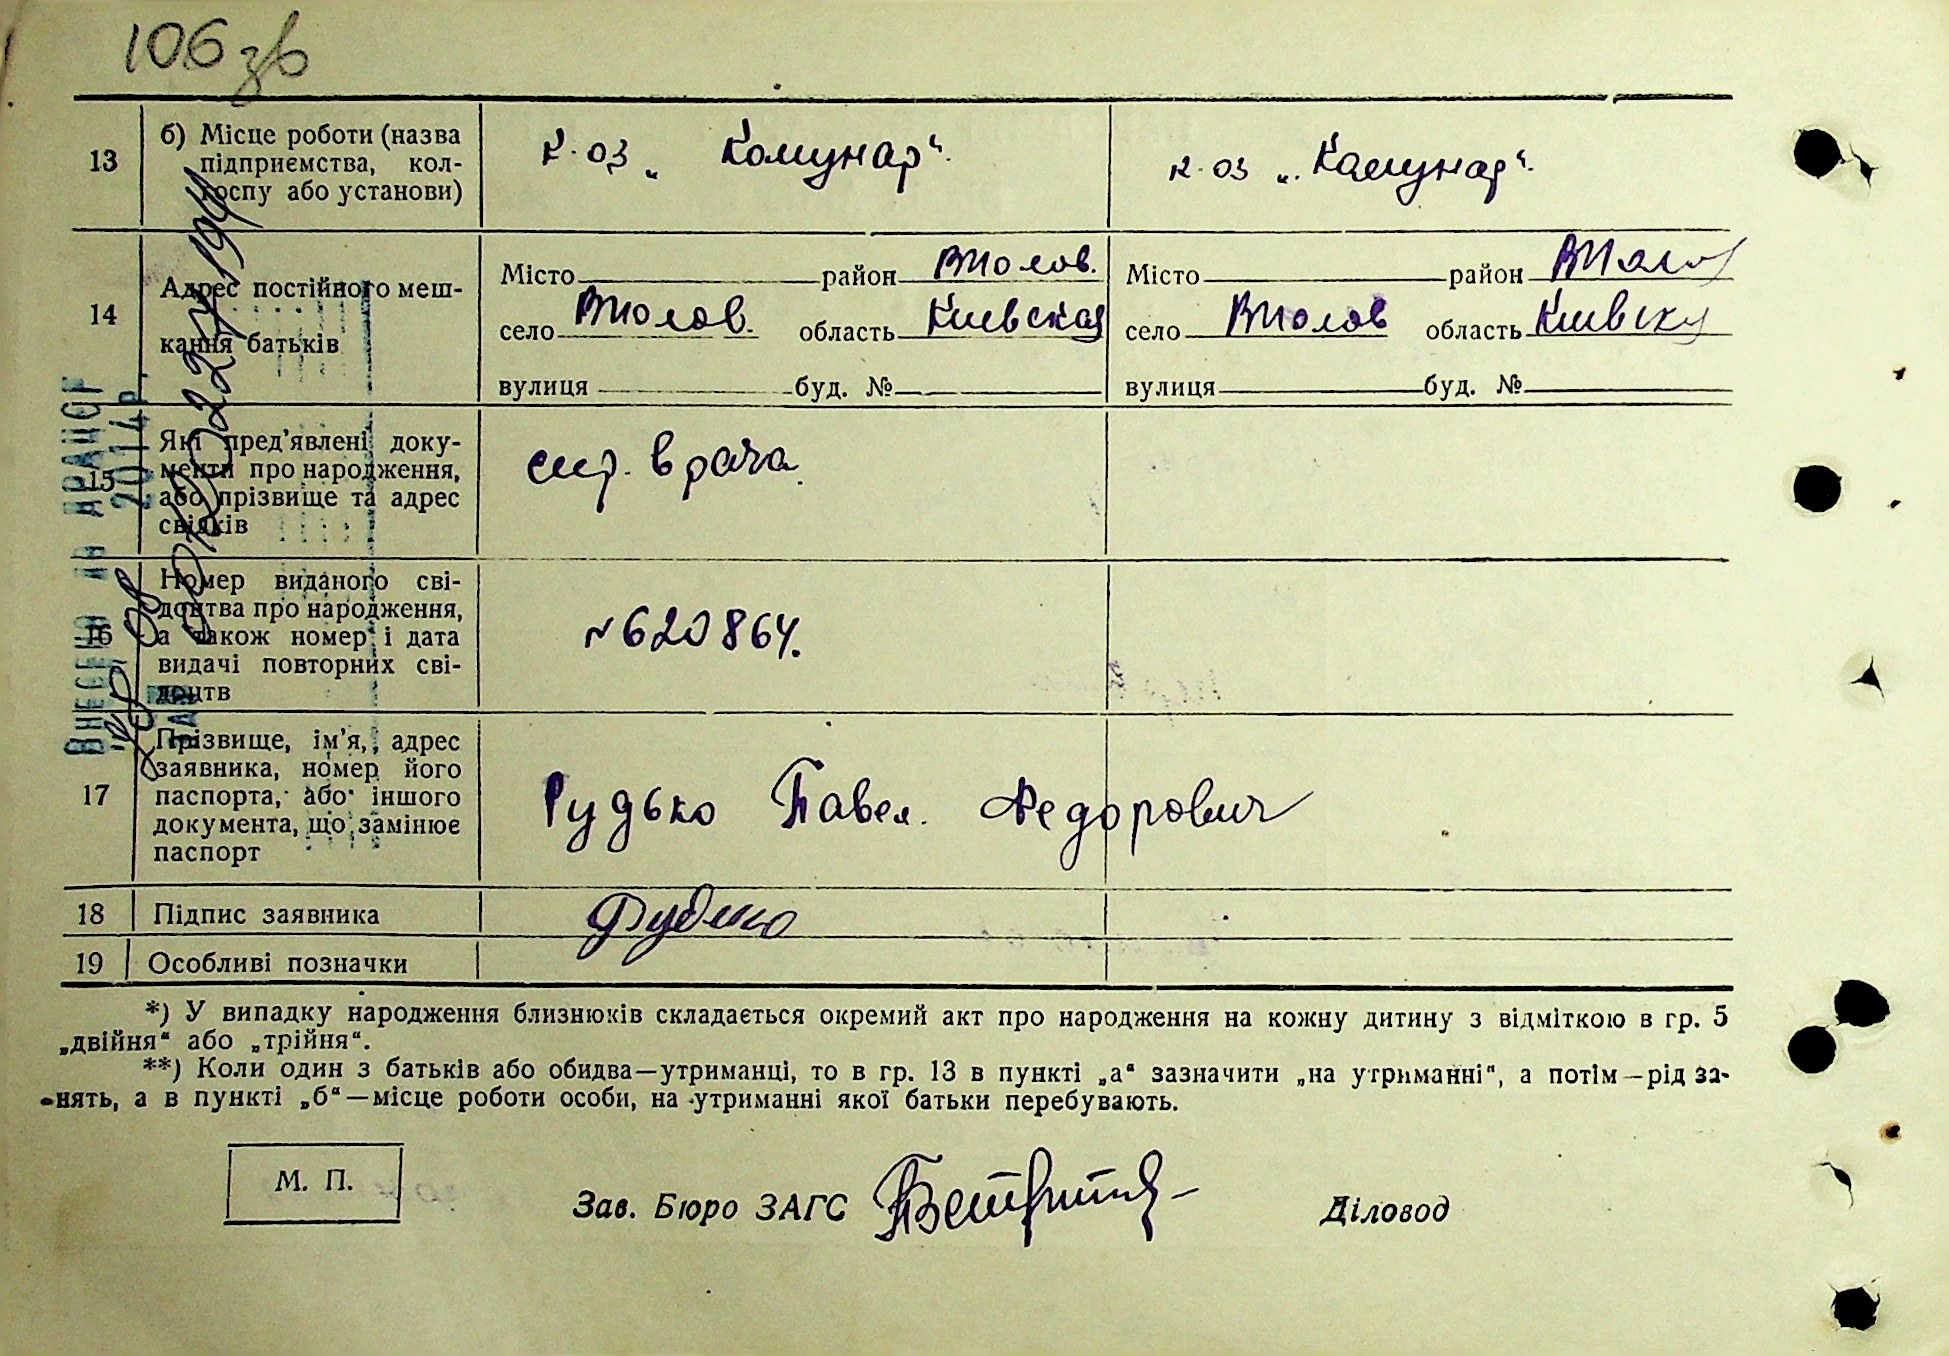 106 зв
13
б) Місце роботи (назва
підприємства, кол-
госпу або установи)
к-оз „ Комунар“.
к-оз „ Камунар“.
14
Адрес постійного меш-
кання батьків
Місто район
село область Киевская
вулиця буд. №
Місто район
село область
вулиця буд. №
15
Які пред’явлені доку-
менти про народження,
або прізвище та адрес
свідків
спр. врача
16
Номер виданого сві-
доцтва про народження,
а також номер і дата
видачі повторних сві-
доцтв
№ 620864.
17
Прізвище, ім’я, адрес
заявника, номер його
паспорта, або іншого
документа, що замінює
паспорт
Рудько Павел. Федорович
18
Підпис заявника
Рудько
19
Особливі позначки
Внесено до ДРАЦСГ
2014р.
*) У випадку народження близнюків складається окремий акт про народження на кожну дитину з відміткою в гр. 5
„двійня“ або „трійня“.
**) Коли один з батьків або обидва—утриманці, то в гр. 13 в пункті „а“ зазначити „на утриманні“, а потім—рід за-
нять, а в пункті „б“—місце роботи особи, на утриманні якої батьки перебувають.
М. П.
Зав. Бюро ЗАГС
Діловод